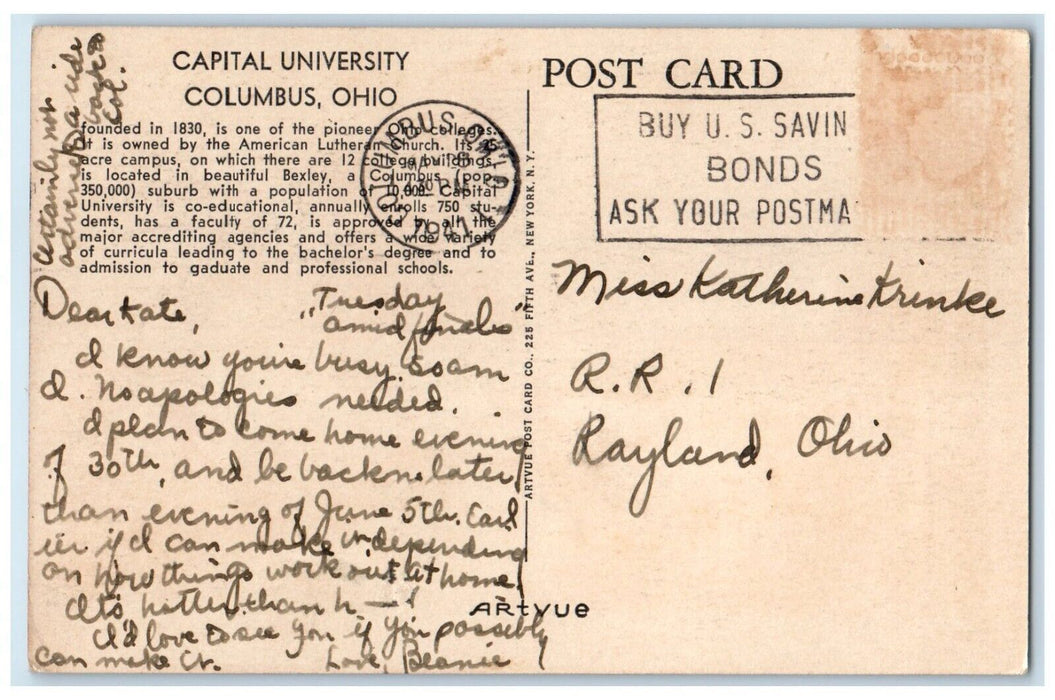 CAPITAL UNIVERSITY
COLUMBUS, OHIO
founded in 1830, is one of the pioneer Ohio colleges.
It is owned by the American Lutheran Church. Its 35
acre campus, on which there are 12 college buildings,
is located in beautiful Bexley, a Columbus (pop.
350,000) suburb with a population of 10,000. Capital
University is co-educational, annually enrolls 750 stu-
dents, has a faculty of 72, is approved by all the
major accrediting agencies and offers a wide variety
of curricula leading to the bachelor's degree and to
admission to gaduate and professional schools.
Certainly not
adverse to a ride
back to
Col.
Tuesday
"amid finals"
Dear Kate,
I know you're busy. So am
I. No apologies needed.
I plan to come home evening
of 30th, and be back n. later
than evening of June 5th. Earl
ier if I can make it depending
on how things work out at home.
It's hotter than h—!
I'd love to see you if you possibly
can make it. Love, Beanie
ARTVUE POST CARD CO., 225 FIFTH AVE., NEW YORK, N.Y.
ARtvue
POST CARD
COLUMBUS, OHIO
MAY 28
PM
1947
BUY U.S. SAVIN
BONDS
ASK YOUR POSTMA
Miss Katherine Krinke
R.R. 1
Rayland, Ohio